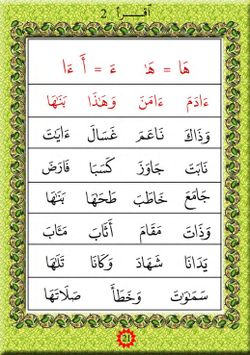 أَقْرَأ 2
هَا = هَٰ ءَ = أَ ءَا
ءَادَمَ ءَامَنَ وَهَٰذَا بَنَٰهَا
وَذَاكَ نَاعَمَ غَسَالَ ءَايَٰتَ
نَابَتَ جَاوَزَ كَسَبَا فَارَضَ
جَامَعَ خَاطَبَ طَحَٰهَا بَنَٰهَا
وَذَاتَ مَقَامَ أَثَابَ مَـَٔابَ
يَدَانَا شَهَادَ وَكَانَا تَلَٰهَا
سَمَٰوَٰتَ وَخَطَأَ صَلَاتَهَا
21